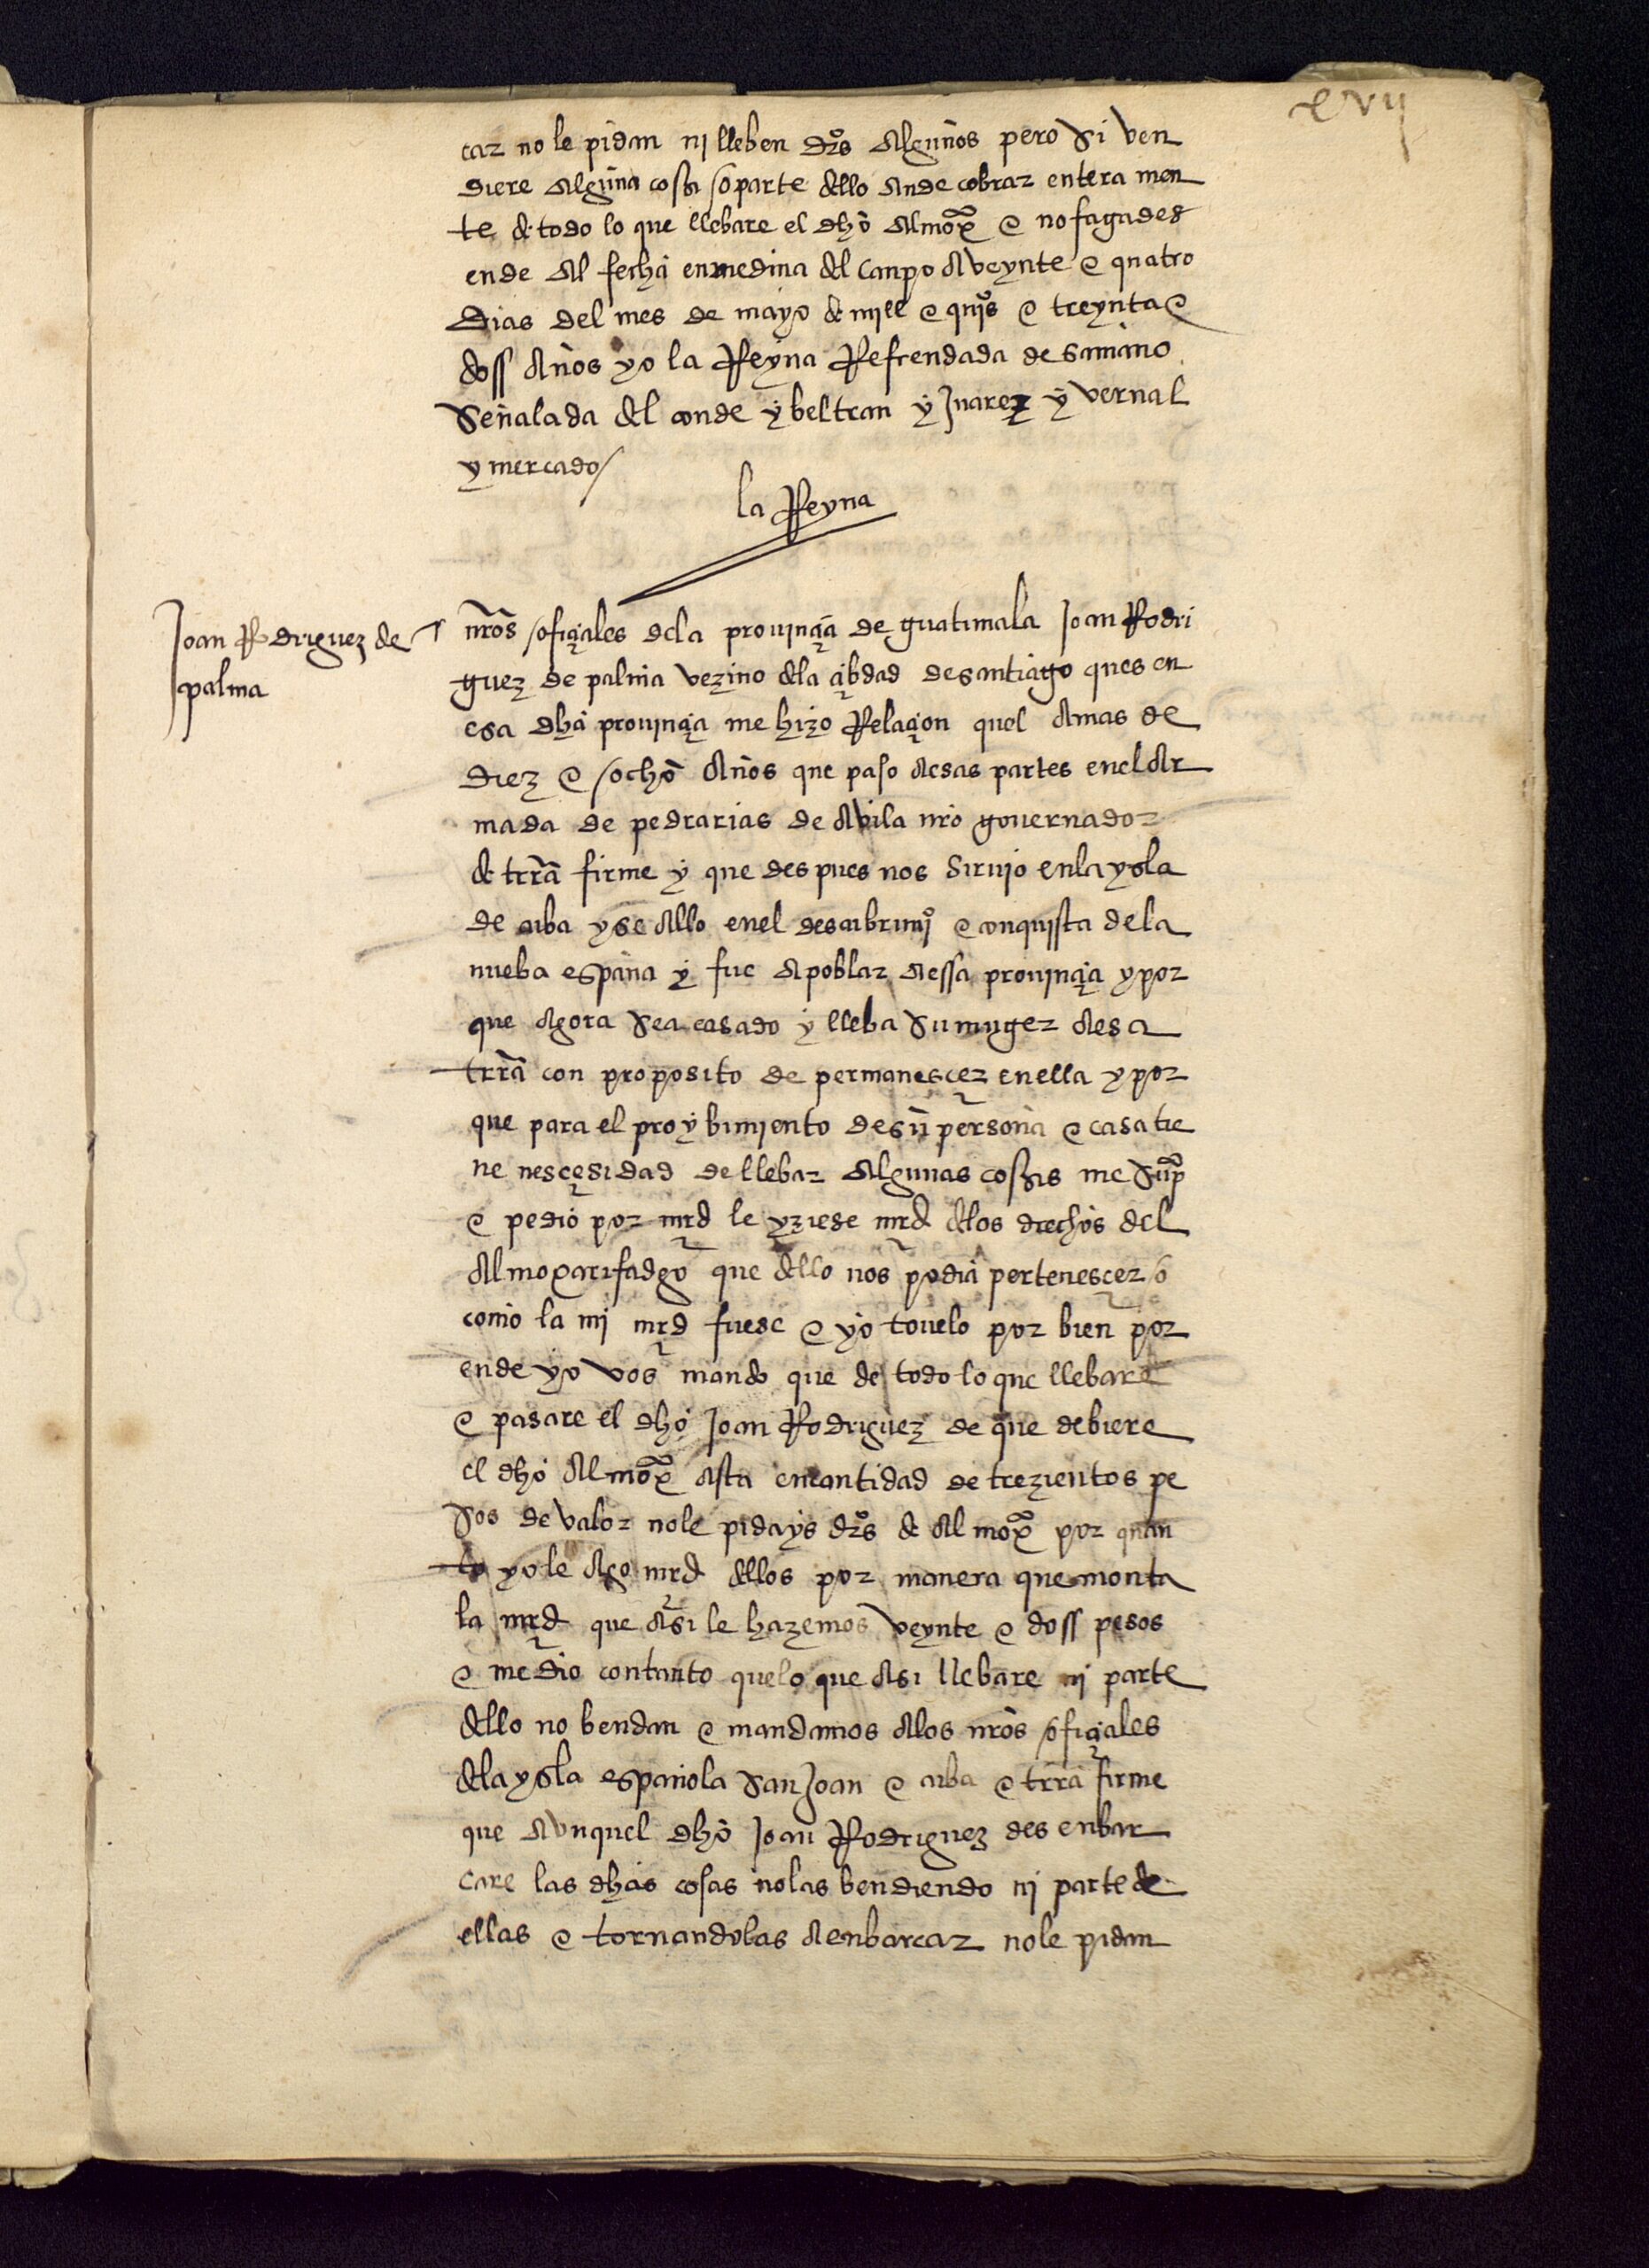 xvij
car no le pidan nj lleben dr̃os algunos pero si ven
diere alguna cossa o parte dello ande cobrar entera men
te de todo lo que llebare el dho almox̃ e no fagades
ende al fecha en medina del canpo a veynte e quatro
dias del mes de mayo de mill e quijos e treynta e
doss años yo la Reyna Refrendada de samano
señalada del conde y beltran y Juarez y vernal
y mercado /
la Reyna
Joan Rodriguez de
palma
nr̃os ofiçiales dela prouinçia de guatimala Joan Rodri
guez de palma vezino dela çibdad de santiago ques en
esa dha prouinçia me hizo Relaçion quel a mas de
diez e ocho años que paso a esas partes enel ar
mada de pedrarias de abila nr̃o gouernador
de trr̃a firme y que despues nos siruio en la ysla
de cuba y se allo enel descubrimjo e conquista de la
nueba españa y fue a poblar a essa prouinçia y por
que agora se a casado y lleba su muger a esa
trr̃a con proposito de permanesçer en ella y por
que para el proybimiento de su persona e casa tie
ne nesçesidad de llebar algunas cossas me sup̃
e pedio por mrd le yziese mrd delos drechos del
almoxarifadgo que dello nos podia pertenesçer o
como la mj mrd fuese e yo touelo por bien por
ende yo vos mando que de todo lo que llebare
e pasare el dho Joan Rodriguez de que debiere
el dho almox̃ asta en cantidad de trezientos pe
sos de valor no le pidays dr̃os de almox̃ por quan
to yo le ago mrd dellos por manera que monta
la mrd que asi le hazemos veynte e doss pesos
e medio con tanto que lo que asi llebare nj parte
dello no bendan e mandamos alos nr̃os ofiçiales
dela ysla española san Joan e cuba e trr̃a firme
que avnquel dho Joan Rodriguez desenbar
care las dhas cosas no las bendiendo nj parte de
ellas e tornandolas a enbarcar no le pidan